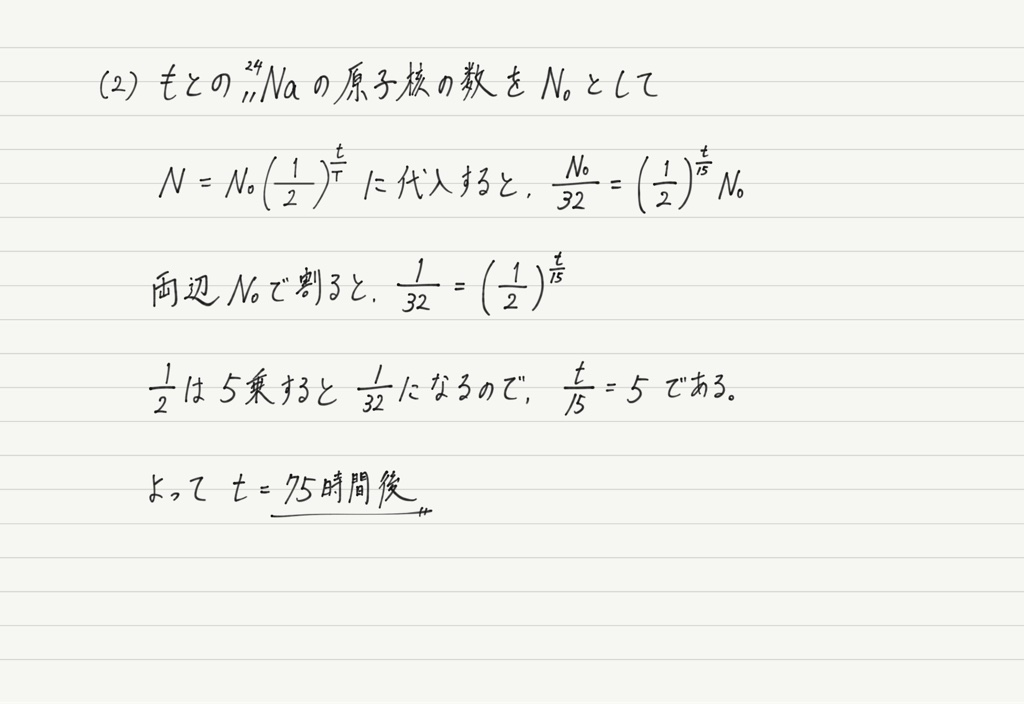 (2) もとの ²⁴₁₁Na の原子核の数を N₀ として
N = N₀(1/2)^(t/T) に代入すると, N₀/32 = (1/2)^(t/15) N₀
両辺 N₀で割ると, 1/32 = (1/2)^(t/15)
1/2 は 5乗すると 1/32 になるので, t/15 = 5 である。
よって t = 75時間後